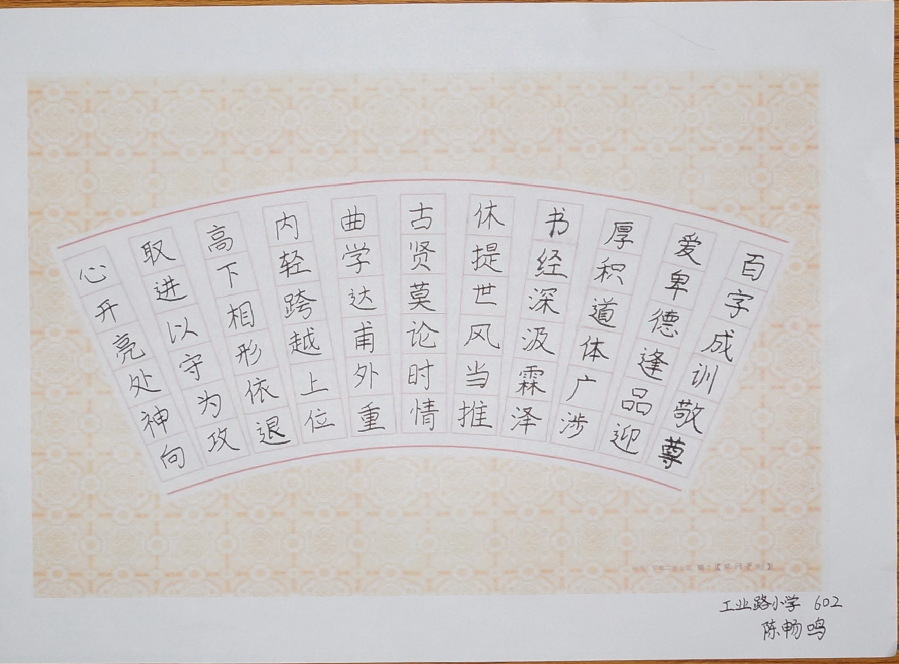 百字成训敬尊
爱卑德逢品迎
厚积道体广涉
书经深汲霖泽
休提世风当推
古贤莫论时情
曲学达甫外重
内轻跨越上位
高下相形依退
取进以守为攻
心开亮处神向
工业路小学 602
陈畅鸣